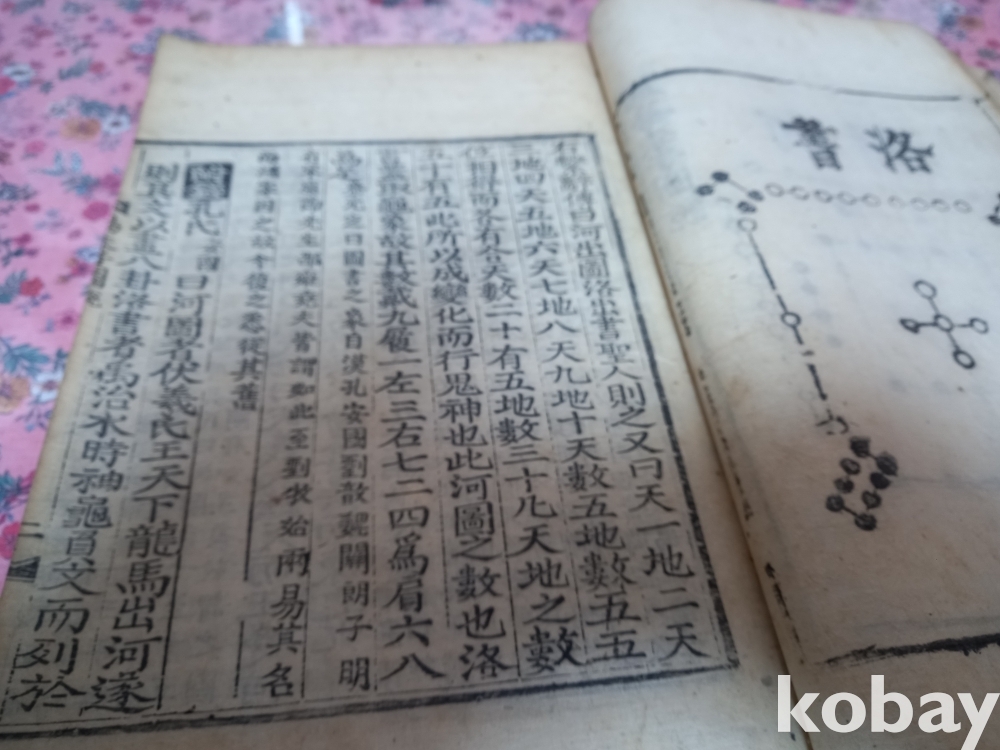 洛書
繫辭傳曰河出圖洛出書聖人則之又曰天一地二天
三地四天五地六天七地八天九地十天數五地數五五
位相得而各有合天數二十有五地數三十凡天地之數
五十有五此所以成變化而行鬼神也此河圖之數也洛
書蓋取龜象故其數戴九履一左三右七二四爲肩六八
爲足蔡元定曰圖書之象自漢孔安國劉歆魏關朗子明
有宋康節先生邵雍堯夫皆謂如此至劉牧始兩易其名
而諸家因之故今復之悉從其舊
孔氏安國曰河圖者伏羲氏王天下龍馬出河遂
則其文以畫八卦洛書者禹治水時神龜負文而列於
二
kobay